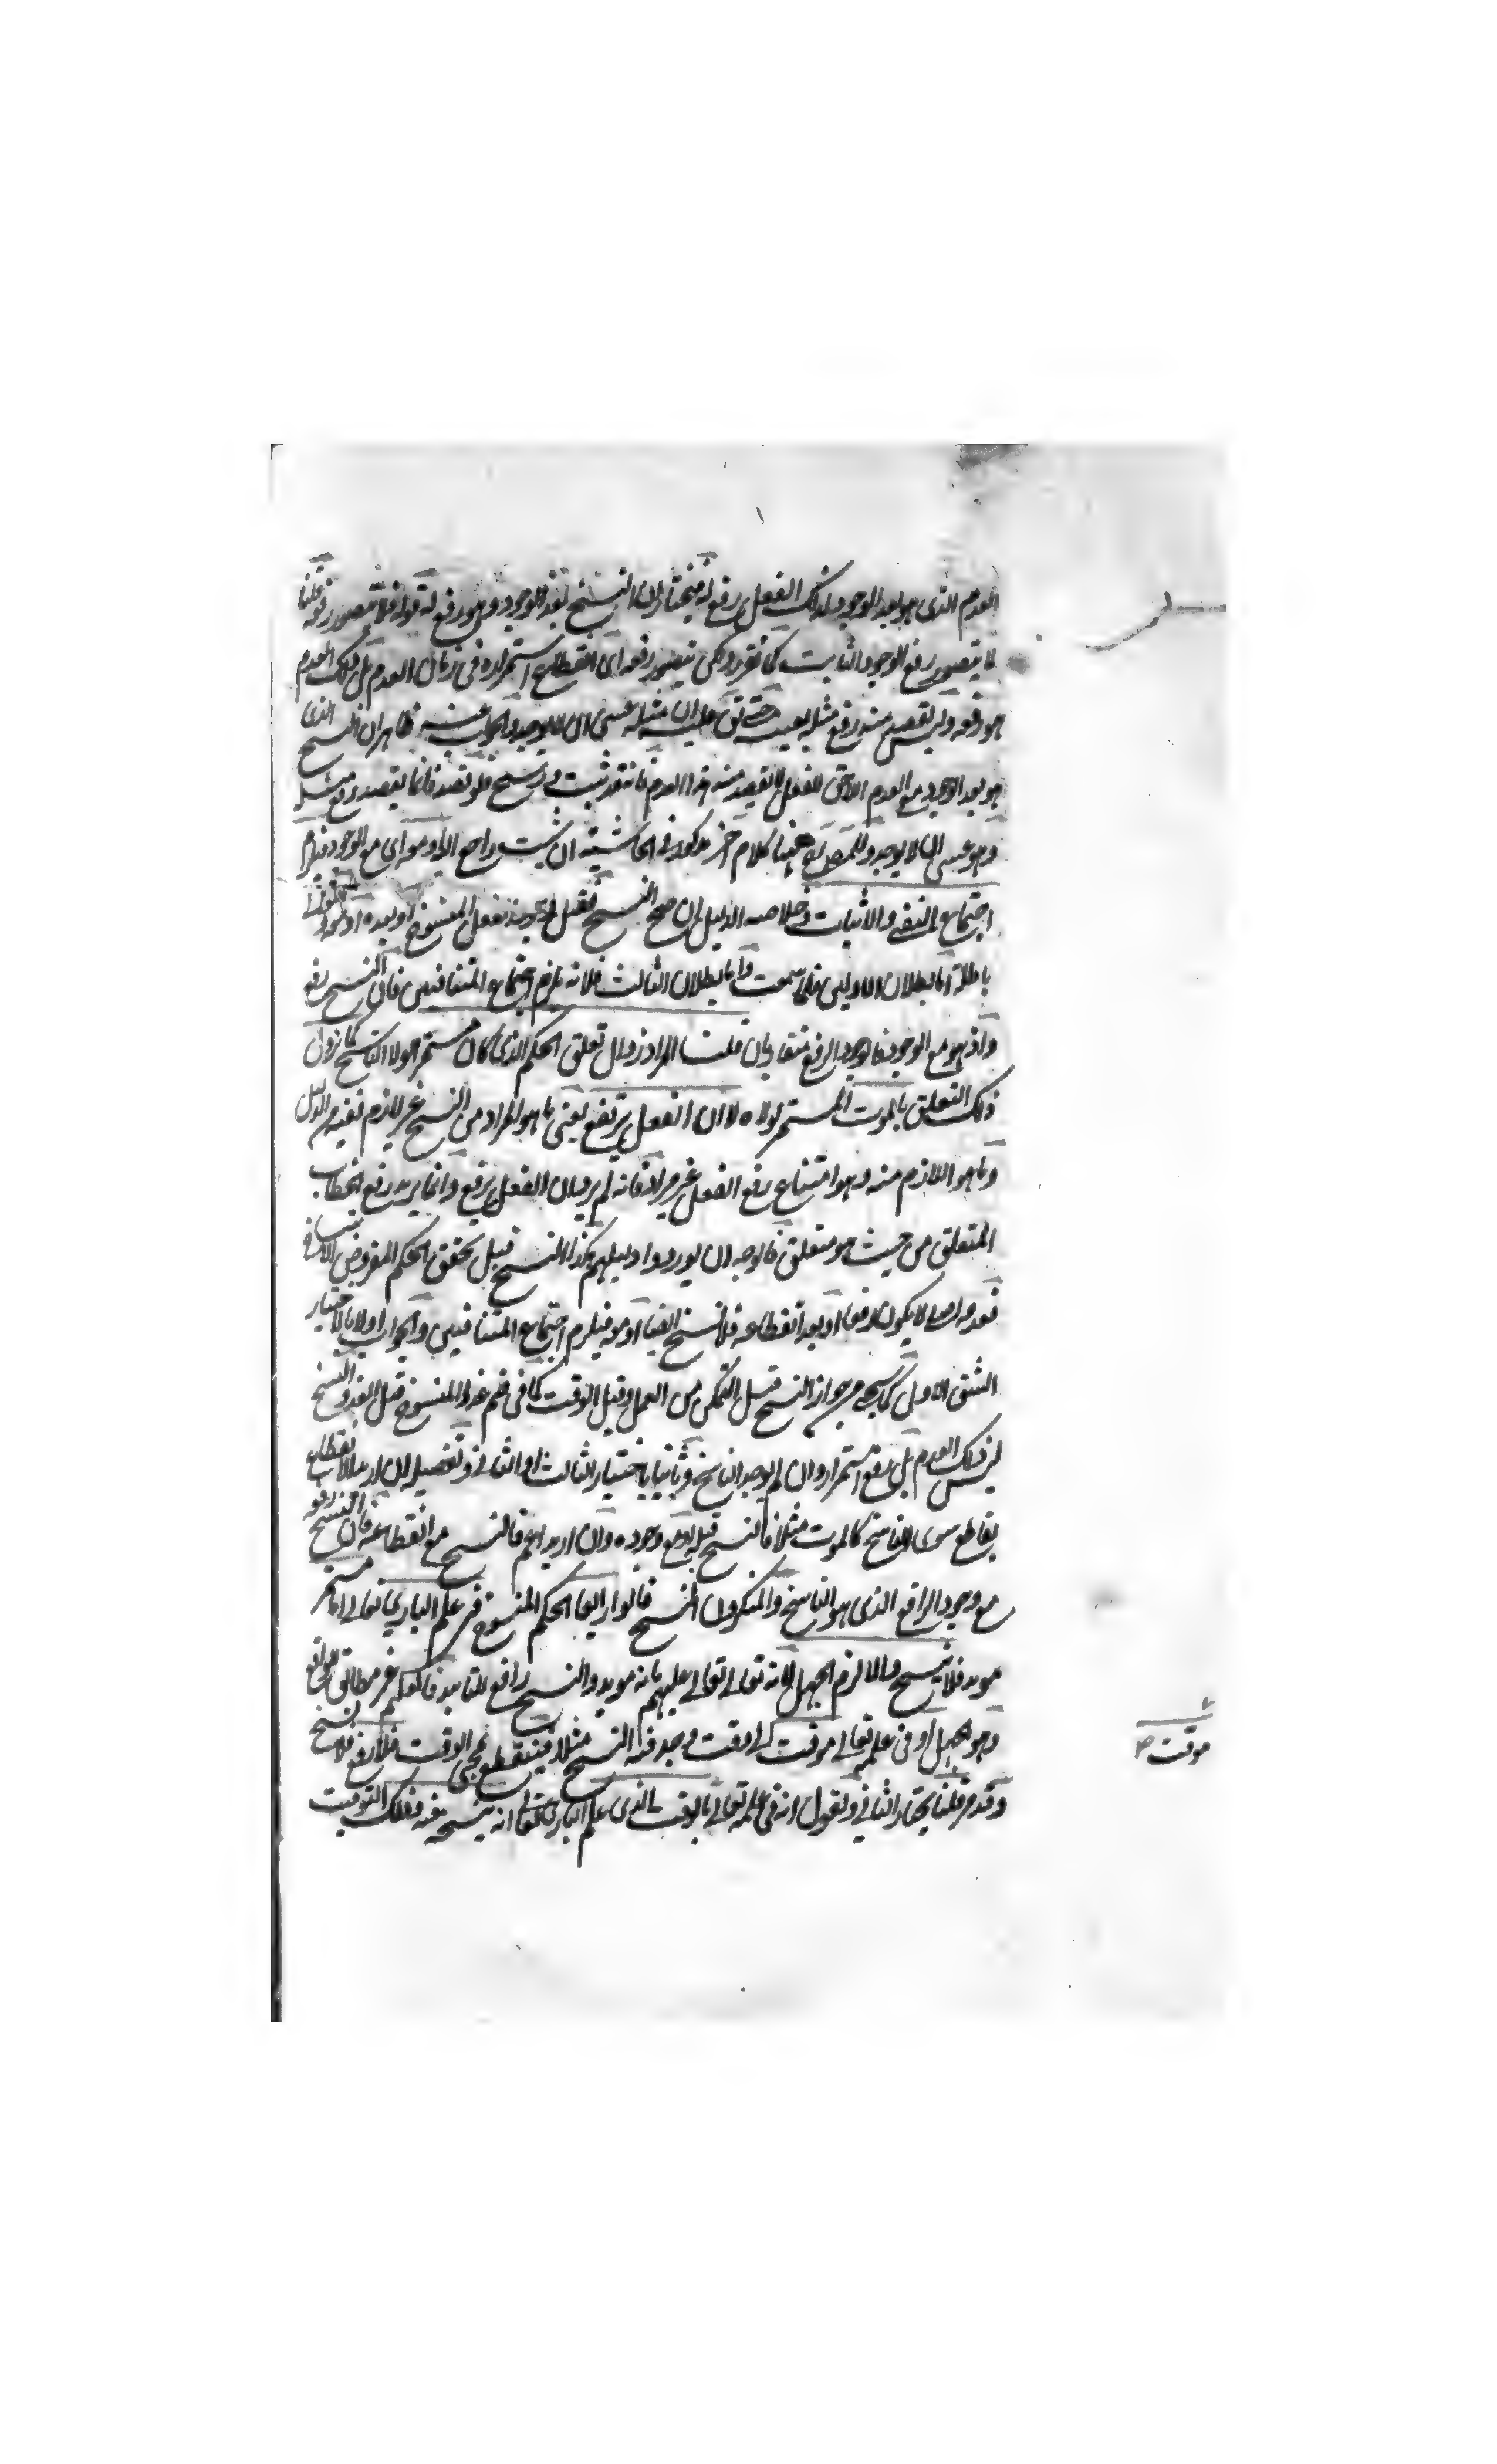 العدم الذي هو بعد الوجود لذلك الفعل رفع له فنختار ان النسخ بعد الوجود وهو رفع له قوله فلا يتصور رفعه قلنا
لا يتصور رفع الوجود الثابت كما تقرر لكن يتصور رفعه اى انقطاع استمراره فى زمان العدم بل ذلك العدم
هو رفعه وليس يقصد منه رفع مثله بعينه حتى ان مثله عسى ان لا يوجد والجواب عنه ظاهر ان النسخ الذى
هو بعد الوجود مع العدم الاحق للفعل لا يقصد منه هذا العدم فانه قد ثبت فلو قصد فانما يقصد رفع مثله
وهو عسى ان لا يوجد وللمص ههنا كلام آخر مذكور فى الحاشية ان شئت راجع اليها او معه اى مع الوجود فيلزم
اجتماع النفى والاثبات وخلاصه الدليل ان صح النسخ فقبل وجود الفعل المنسوخ او بعده او معه
باطلة اما بطلان الاوليين فلما سمعت واما بطلان الثالث فلانه يلزم اجتماع المتنافيين فان النسخ رفع
واذ هو مع الوجود فالوجود والرفع متقارنان قلنا المراد زوال تعلق الحكم الذى كان مستمرا لولا الناسخ كما زوال
ذلك التعلق بالموت المستمر لولاه لا ان الفعل يرتفع يعنى ما هو المراد من النسخ غير لازم نفيه من الدليل
وما هو اللازم منه وهو امتناع رفع الفعل غير مراد فانه لم يرد ان الفعل يرتفع وانما يريد رفع الخطاب
المتعلق من حيث هو متعلق فالوجه ان يوردوا دليلهم هكذا النسخ قبل تحقق الحكم المفروض
فعدمه اصلى لا يكون رفعا او بعد انقطاعه فلا نسخ ايضا او معه فيلزم اجتماع المتنافيين والجواب اولا باختيار
الشق الاول كما سيجئ من جواز النسخ قبل التمكن من العمل وقبل الوقت كما فى صم غدا المنسوخ قبل الغد والنسخ
ليس ذلك العدم بل رفع استمراره ان لم يوجد الناسخ وثانيا باختيار الثالث او الثانى وتفصيله ان اريد الانقطاع
بقاطع سوى الناسخ كالموت مثلا فالنسخ قبله ومع وجوده وان اريد اعم فالنسخ مع انقطاعه فان النسخ رفع
مع وجود الرافع الذى هو الناسخ والمنكرون للنسخ قالوا رابعا الحكم المنسوخ فى علم البارى تعالى اما مستمر
مؤبد فلا نسخ والا لزم الجهل لانه تعالى عليهم بانه مؤبد والنسخ رافع للتابيد فالحكم غير مطابق للواقع
وهو جهل او فى علمه تعالى موقت الى وقت وجد فيه النسخ مثلا فينقطع بمجئ الوقت فلا رفع فلا نسخ
وقد مر قلنا يختار الثانى ونقول انه فى علمه تعالى بالوقت الذى علم البارى تعالى انه ينسخه فيه فذلك التوقيت
موقت